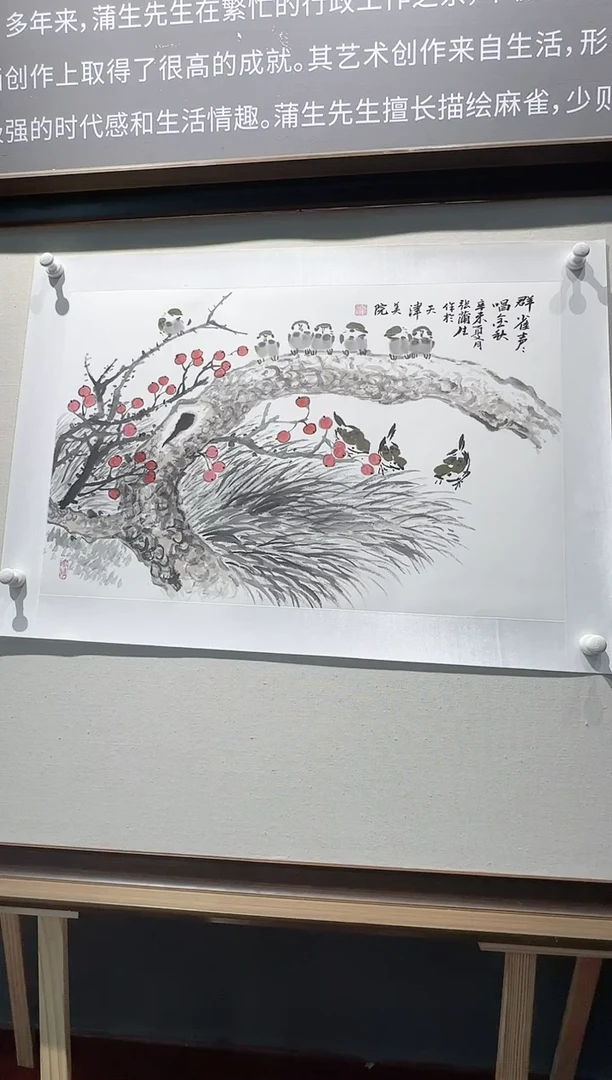 多年来，蒲生先生在繁忙的行政工作之余，
创作上取得了很高的成就。其艺术创作来自生活，形
强的时代感和生活情趣。蒲生先生擅长描绘麻雀，少则
群雀声々
唱金秋
辛未夏月
张蒲生
作於
天津美院